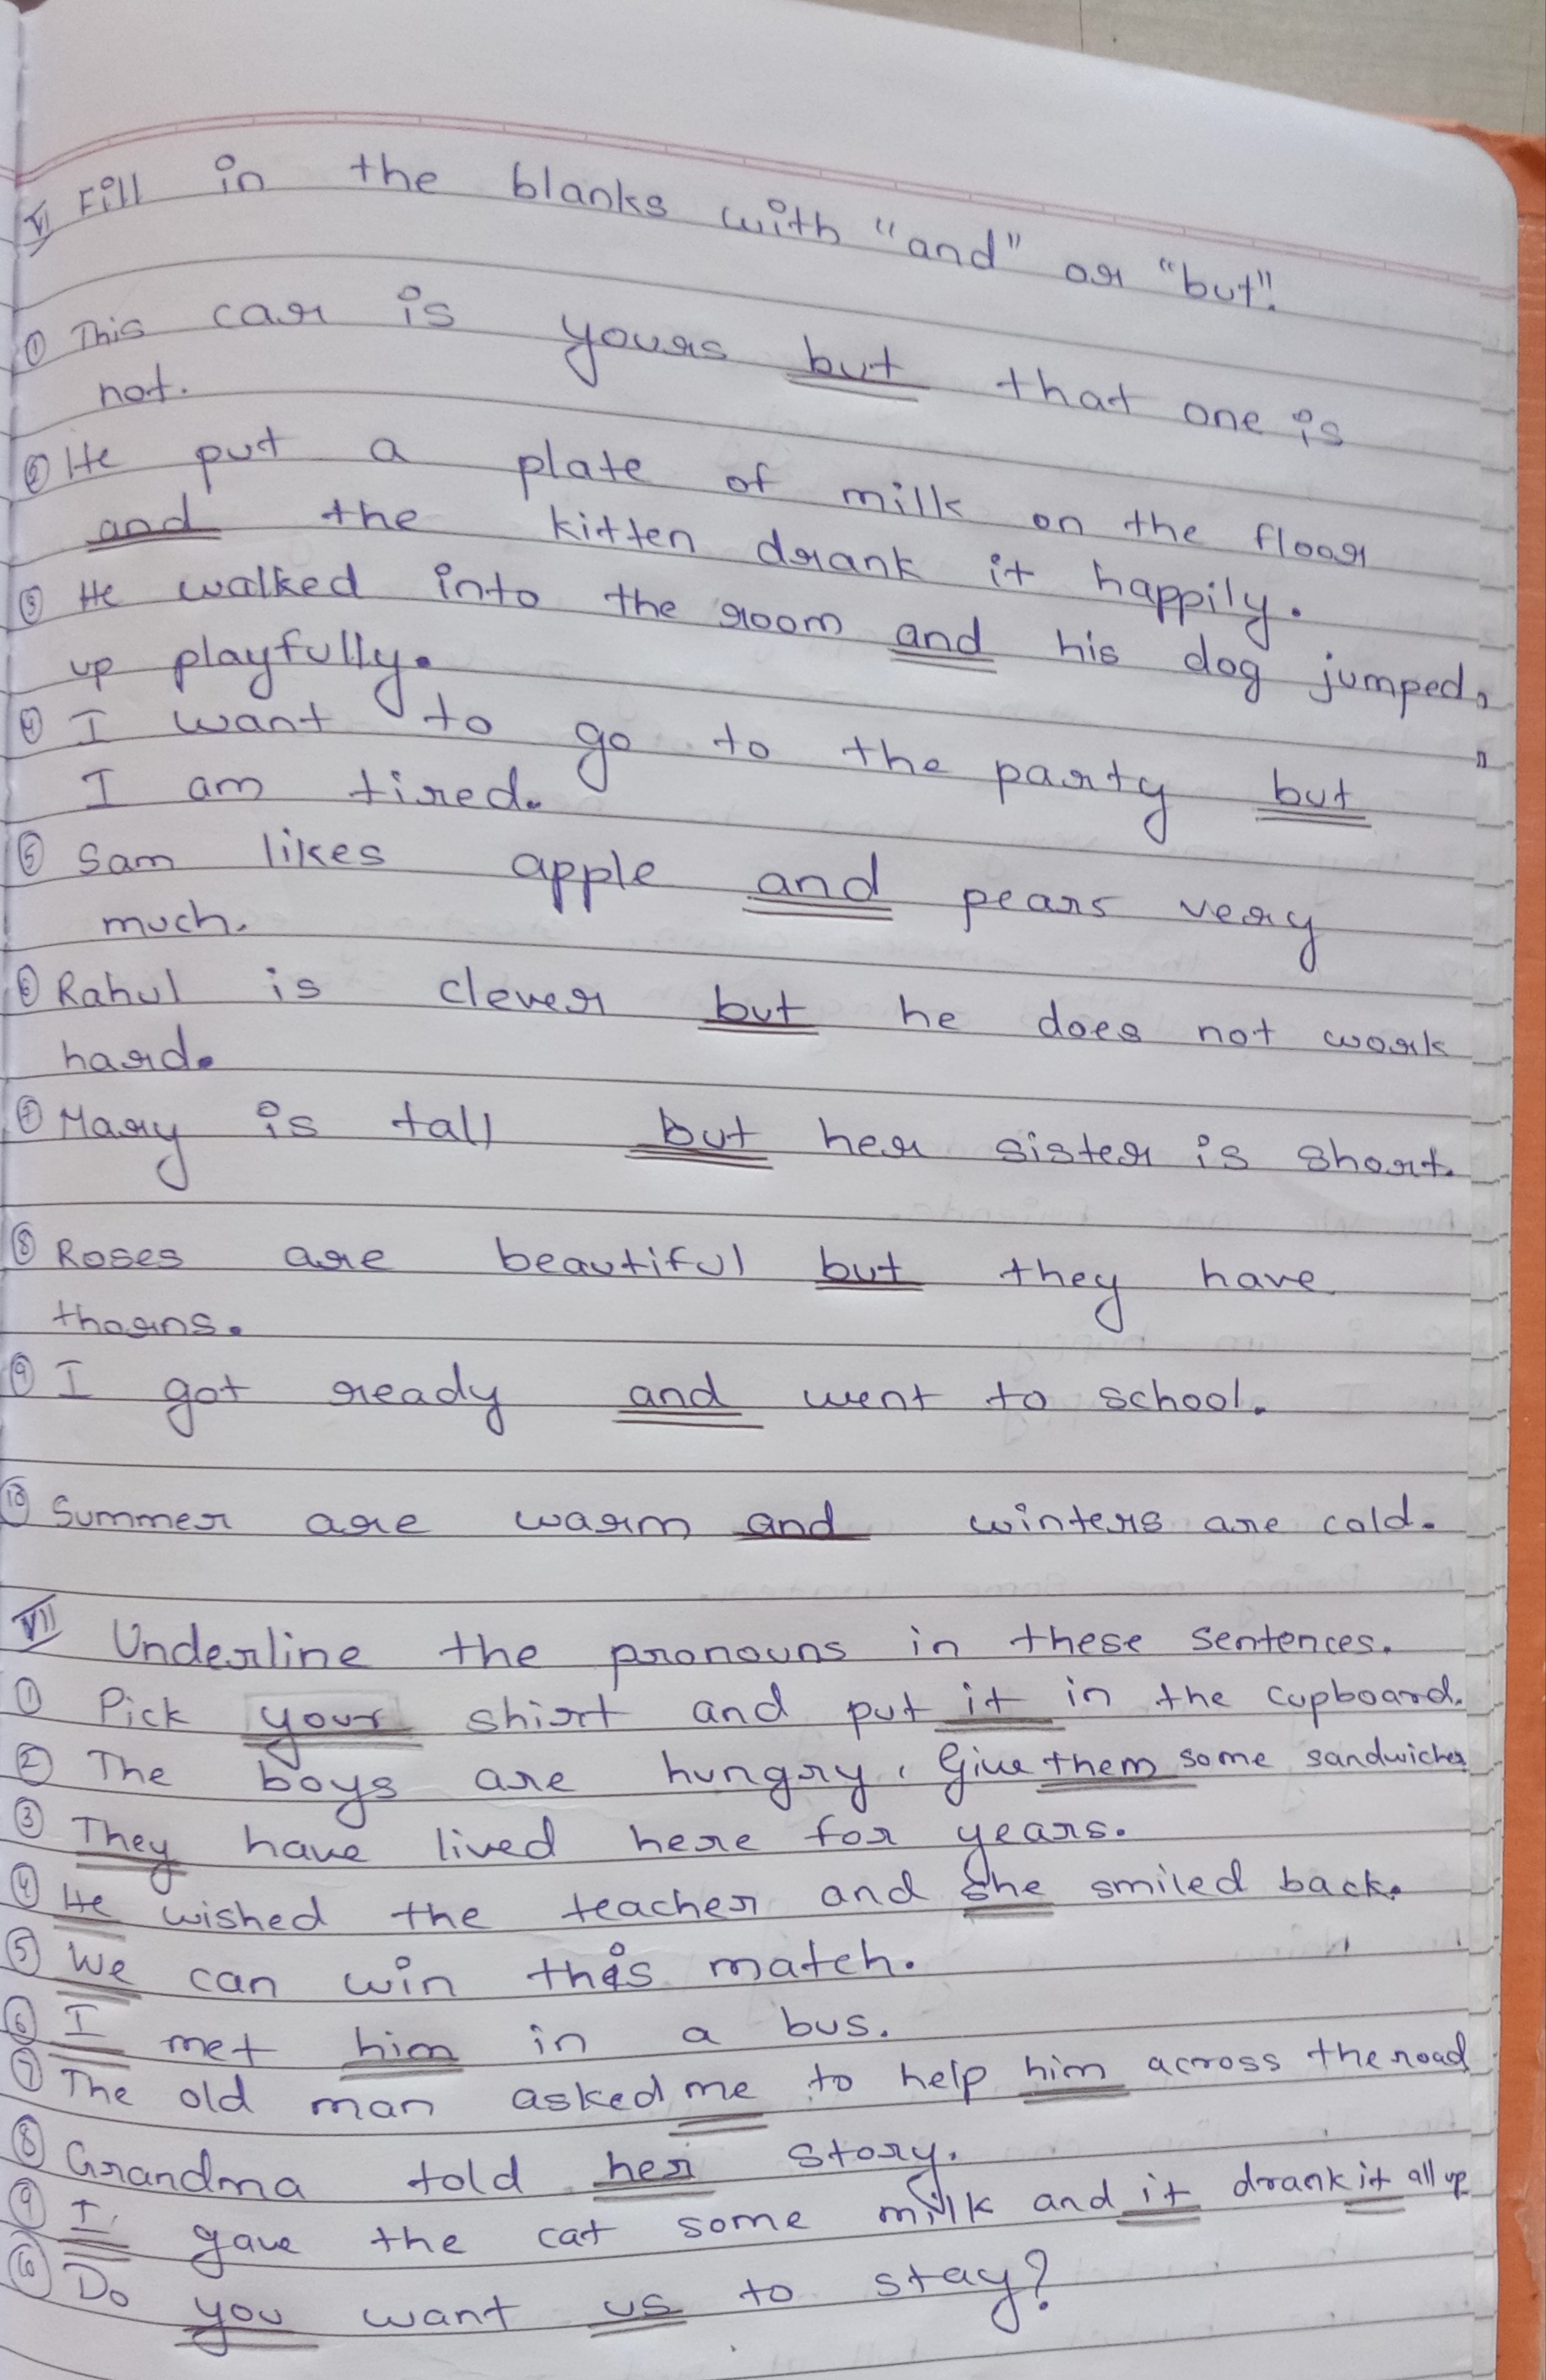 VI Fill in the blanks with "and" or "but".
① This car is yours but that one is
not.
② He put a plate of milk on the floor
and the kitten drank it happily.
③ He walked into the room and his dog jumped
up playfully.
④ I want to go to the party but
I am tired.
⑤ Sam likes apple and pears very
much.
⑥ Rahul is clever but he does not work
hard.
⑦ Mary is tall but her sister is short.
⑧ Roses are beautiful but they have
thorns.
⑨ I got ready and went to school.
⑩ Summer are warm and winters are cold.
VII Underline the pronouns in these sentences.
① Pick your shirt and put it in the cupboard.
② The boys are hungry, Give them some sandwiches
③ They have lived here for years.
④ He wished the teacher and she smiled back.
⑤ We can win this match.
⑥ I met him in a bus.
⑦ The old man asked me to help him across the road
⑧ Grandma told her story.
⑨ I gave the cat some milk and it drank it all up
⑩ Do you want us to stay?